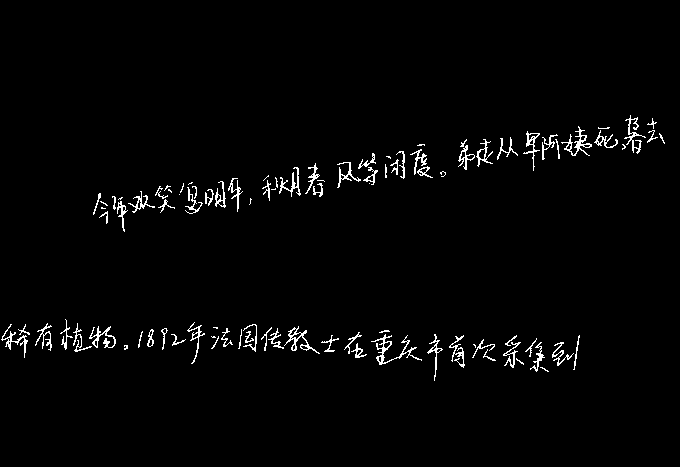 今年欢笑复明年，秋月春风等闲度。弟走从军阿姨死，暮去
稀有植物。1892年法国传教士在重庆市首次采集到